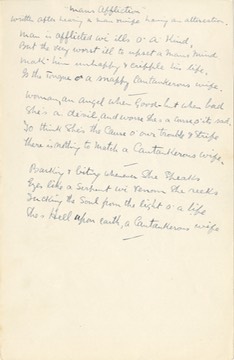 "Mans Affliction"
written after hearing a man & wife having an altercation.
Man is afflicted wi ills o' a' Kind,
But the very worst ill to upset a Mans Mind
Mak him unhappy & cripple his life,
Is the tongue o' a snappy Cantankerous wife,
Woman, an Angel when Good but when bad
She's an devil, and worse she's a cause it's sad,
To think She's the Cause o' our trouble & Strife
there is nothing to Match a Cantankerous Wife,
Barking & biting whenever She Speaks
Eyes like a Serpent wi Venom She reeks
Sucking the Soul from the light o' a life
She's Hell upon earth, a Cantankerous wife